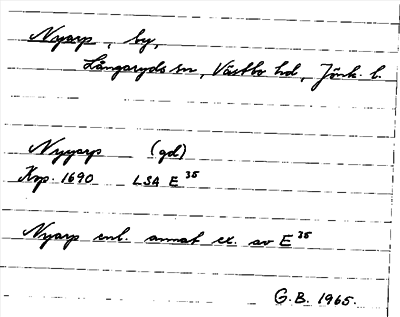 Nyarp, by,
Långaryds sn, Västbo hd, Jönk. l.
Nyyarp (gd)
Kop. 1690 LSA E 35
Nyarp enl. annat ex. av E 35
G.B. 1965.